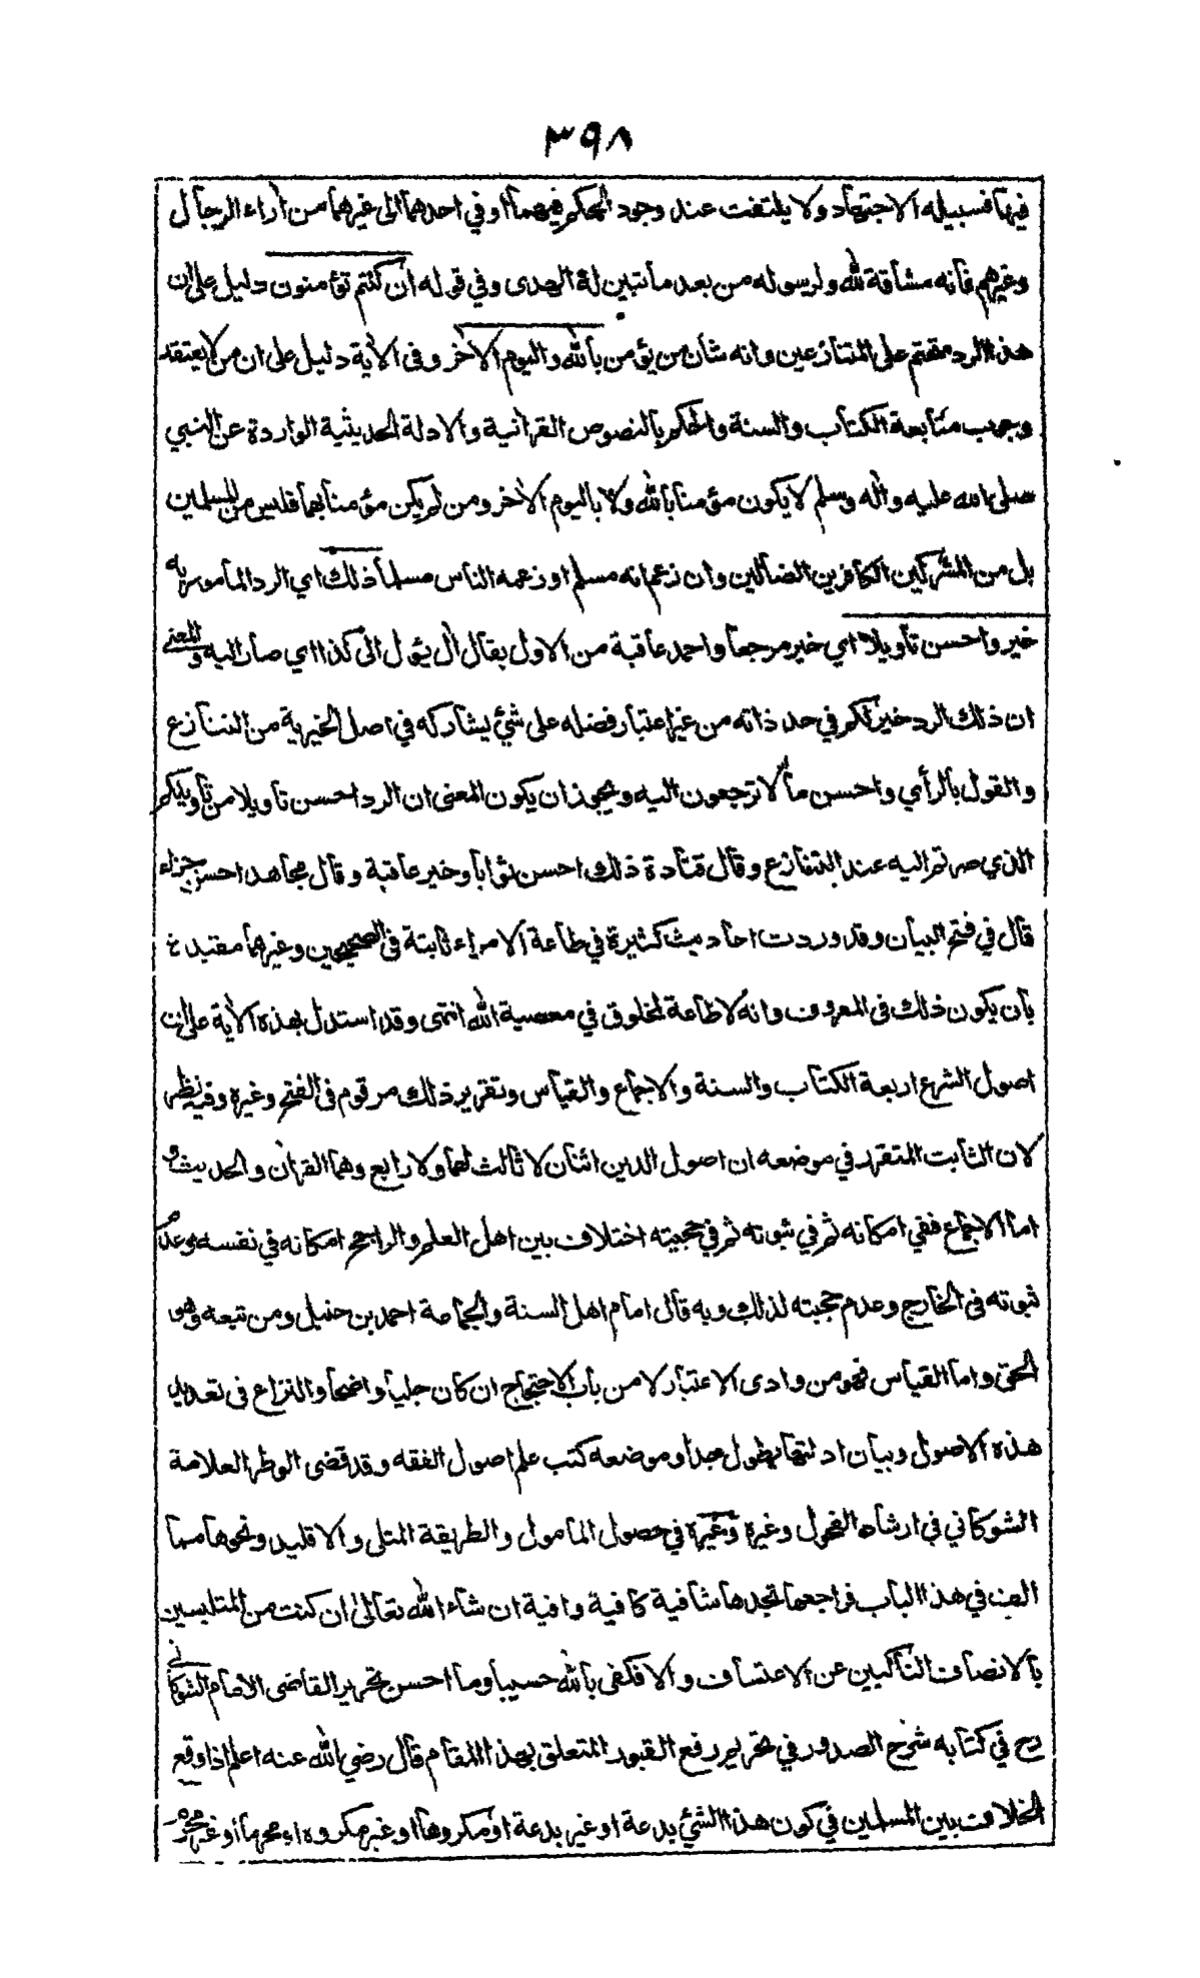 ٣٩٨
فيها فسبيله الاجتهاد ولا يلتفت عند وجود الحكم فيهما او في احدهما الى غيرهما من آراء الرجال
وغيرهم فانه مشاقة لله ولرسوله من بعد ما تبين له الهدى وفي قوله ان كنتم تؤمنون دليل على ان
هذا الرد متحتم على المتنازعين وانه شان من يؤمن بالله واليوم الاخر وفى الآية دليل على ان من لا يعتقد
وجوب متابعة الكتاب والسنة والحكم بالنصوص القرآنية والادلة الحديثية الواردة عن النبي
صلى الله عليه وآله وسلم لا يكون مؤمنا بالله ولا باليوم الاخر ومن لم يكن مؤمنا بهما فليس من المسلمين
بل من المشركين الكافرين الضالين وان زعم انه مسلم او زعمه الناس مسلما ذلك اي الرد المأمور به
خير واحسن تأويلا اي خير مرجعا واحمد عاقبة من الاول يقال آل يؤل الى كذا اي صار اليه والمعنى
ان ذلك الرد خير لكم في حد ذاته من غير اعتبار فضله على شئ يشاركه في اصل الخيرية من التنازع
والقول بالرأي واحسن مآلا ترجعون اليه ويجوز ان يكون المعنى ان الرد احسن تأويلا من تأويلكم
الذي صرتم اليه عند التنازع وقال قتادة ذلك احسن ثوابا وخير عاقبة وقال مجاهد احسن جزاء
قال في فتح البيان وقد وردت احاديث كثيرة في طاعة الامراء ثابتة فى الصحيحين وغيرهما مقيدة
بان يكون ذلك فى المعروف وانه لا طاعة لمخلوق في معصية الله انتهى وقد استدل بهذه الآية على ان
اصول الشرع اربعة الكتاب والسنة والاجماع والقياس وتقرير ذلك مرقوم فى الفتح وغيره وفيه نظر
لان الثابت المتقرر في موضعه ان اصول الدين اثنان لا ثالث لهما ولا رابع وهما القرآن والحديث و
اما الاجماع ففي امكانه ثم في ثبوته ثم في حجيته اختلاف بين اهل العلم والراجح امكانه في نفسه وعدم
ثبوته فى الخارج وعدم حجيته لذلك وبه قال امام اهل السنة والجماعة احمد بن حنبل ومن تبعه وهو
الحق واما القياس فهو من وادى الاعتبار لا من باب الاحتجاج ان كان جليا واضحا والنزاع فى تعديد
هذه الاصول وبيان ادلتها يطول جدا وموضعه كتب علم اصول الفقه وقد قضى الوطر العلامة
الشوكاني في ارشاد الفحول وغيره وغيره في حصول المامول والطريقة المثلى والاقليد ونحوها مما
الف في هذا الباب فراجعها تجدها شافية كافية وافية ان شاء الله تعالى ان كنت من المتلبسين
بالانصاف الناكبين عن الاعتساف والا فكفى بالله حسيبا وما احسن تحرير القاضى الامام الشوكاني
رح في كتابه شرح الصدور في تحرير رفع القبور المتعلق بهذا المقام قال رضي الله عنه اعلم اذا وقع
الخلاف بين المسلمين في كون هذا الشئ بدعة او غير بدعة او مكروها او غير مكروه او محرما او غير محرم